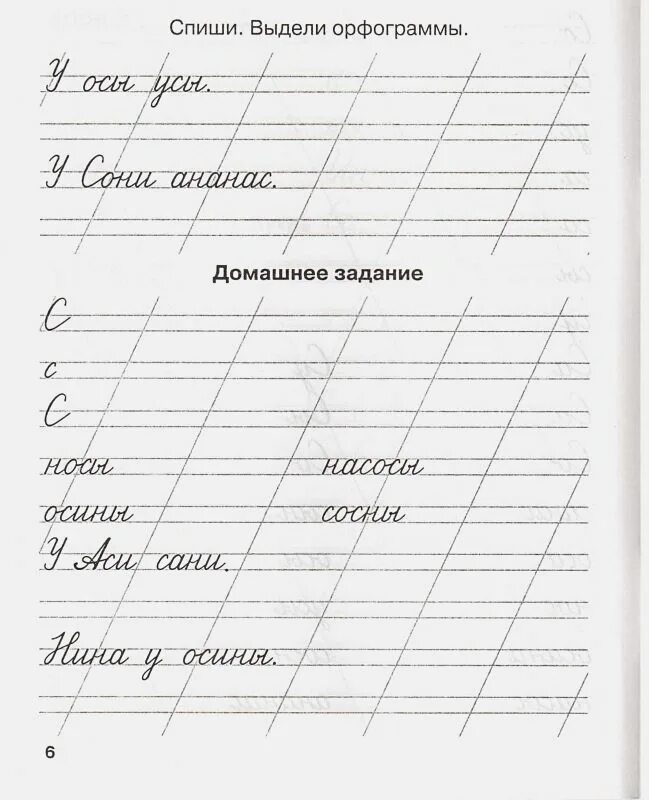 Спиши. Выдели орфограммы.
У осы усы.
У Сони ананас.
Домашнее задание
С
с
С
носы насосы
осины сосны
У Аси сани.
Нина у осины.
6